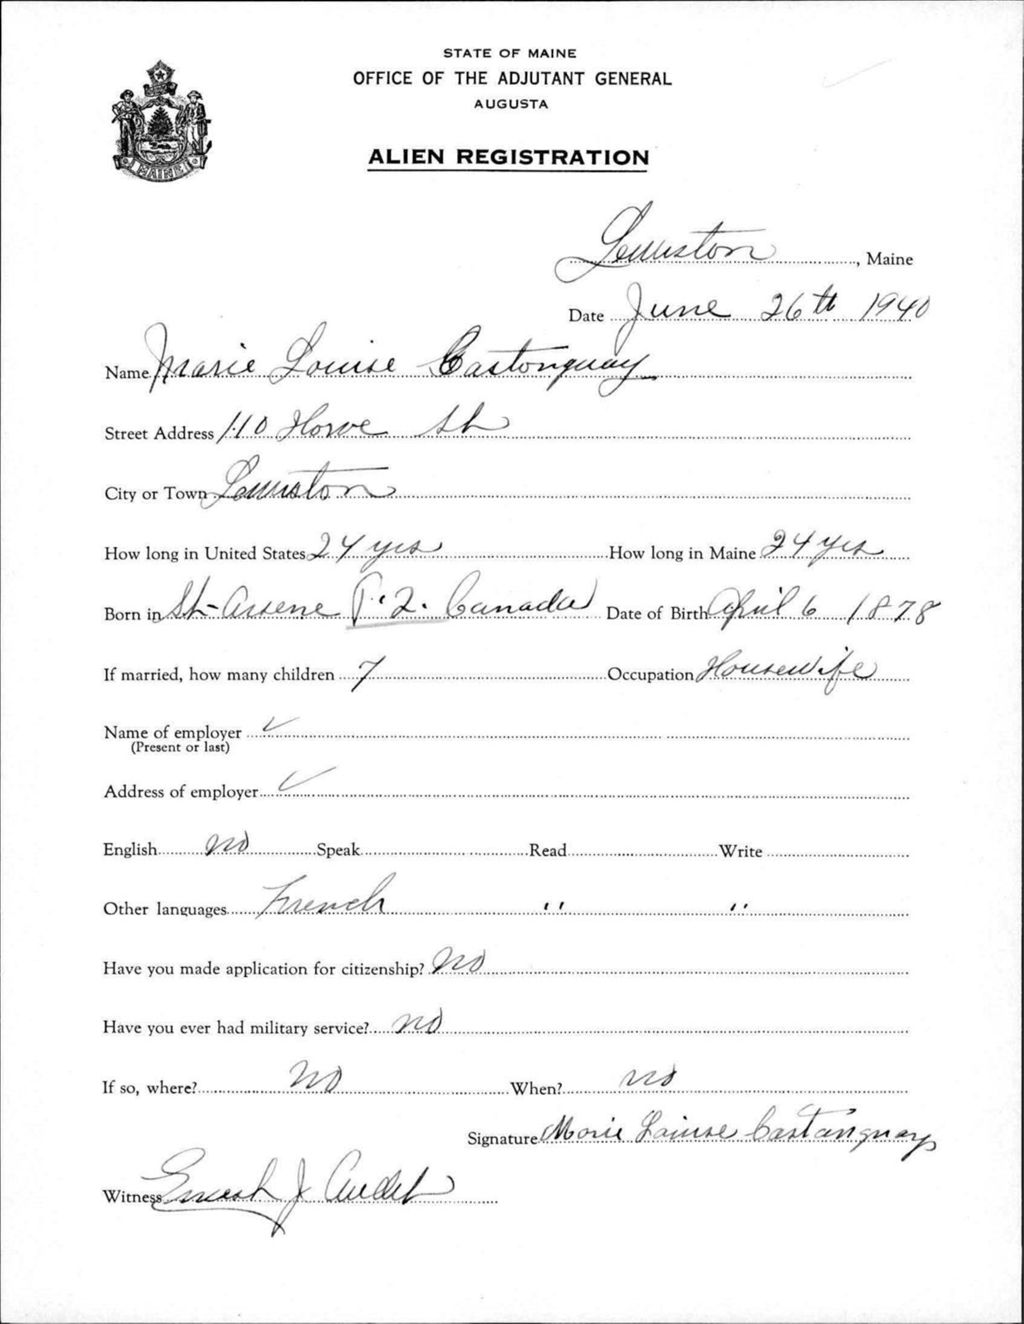 STATE OF MAINE
OFFICE OF THE ADJUTANT GENERAL
AUGUSTA
MAINE
ALIEN REGISTRATION
Lewiston, Maine
Date June 26th 1940
Name Marie Louise Castonguay
Street Address 110 Howe St
City or Town Lewiston
How long in United States 24 yrs How long in Maine 24 yrs
Born in St-Arsene P.Q. Canada Date of Birth April 6 1878
If married, how many children 7 Occupation Housewife
Name of employer ✓
(Present or last)
Address of employer ✓
English no Speak Read Write
Other languages French " "
Have you made application for citizenship? No
Have you ever had military service? no
If so, where? No When? no
Signature Marie Louise Castonguay
Witness J Audet